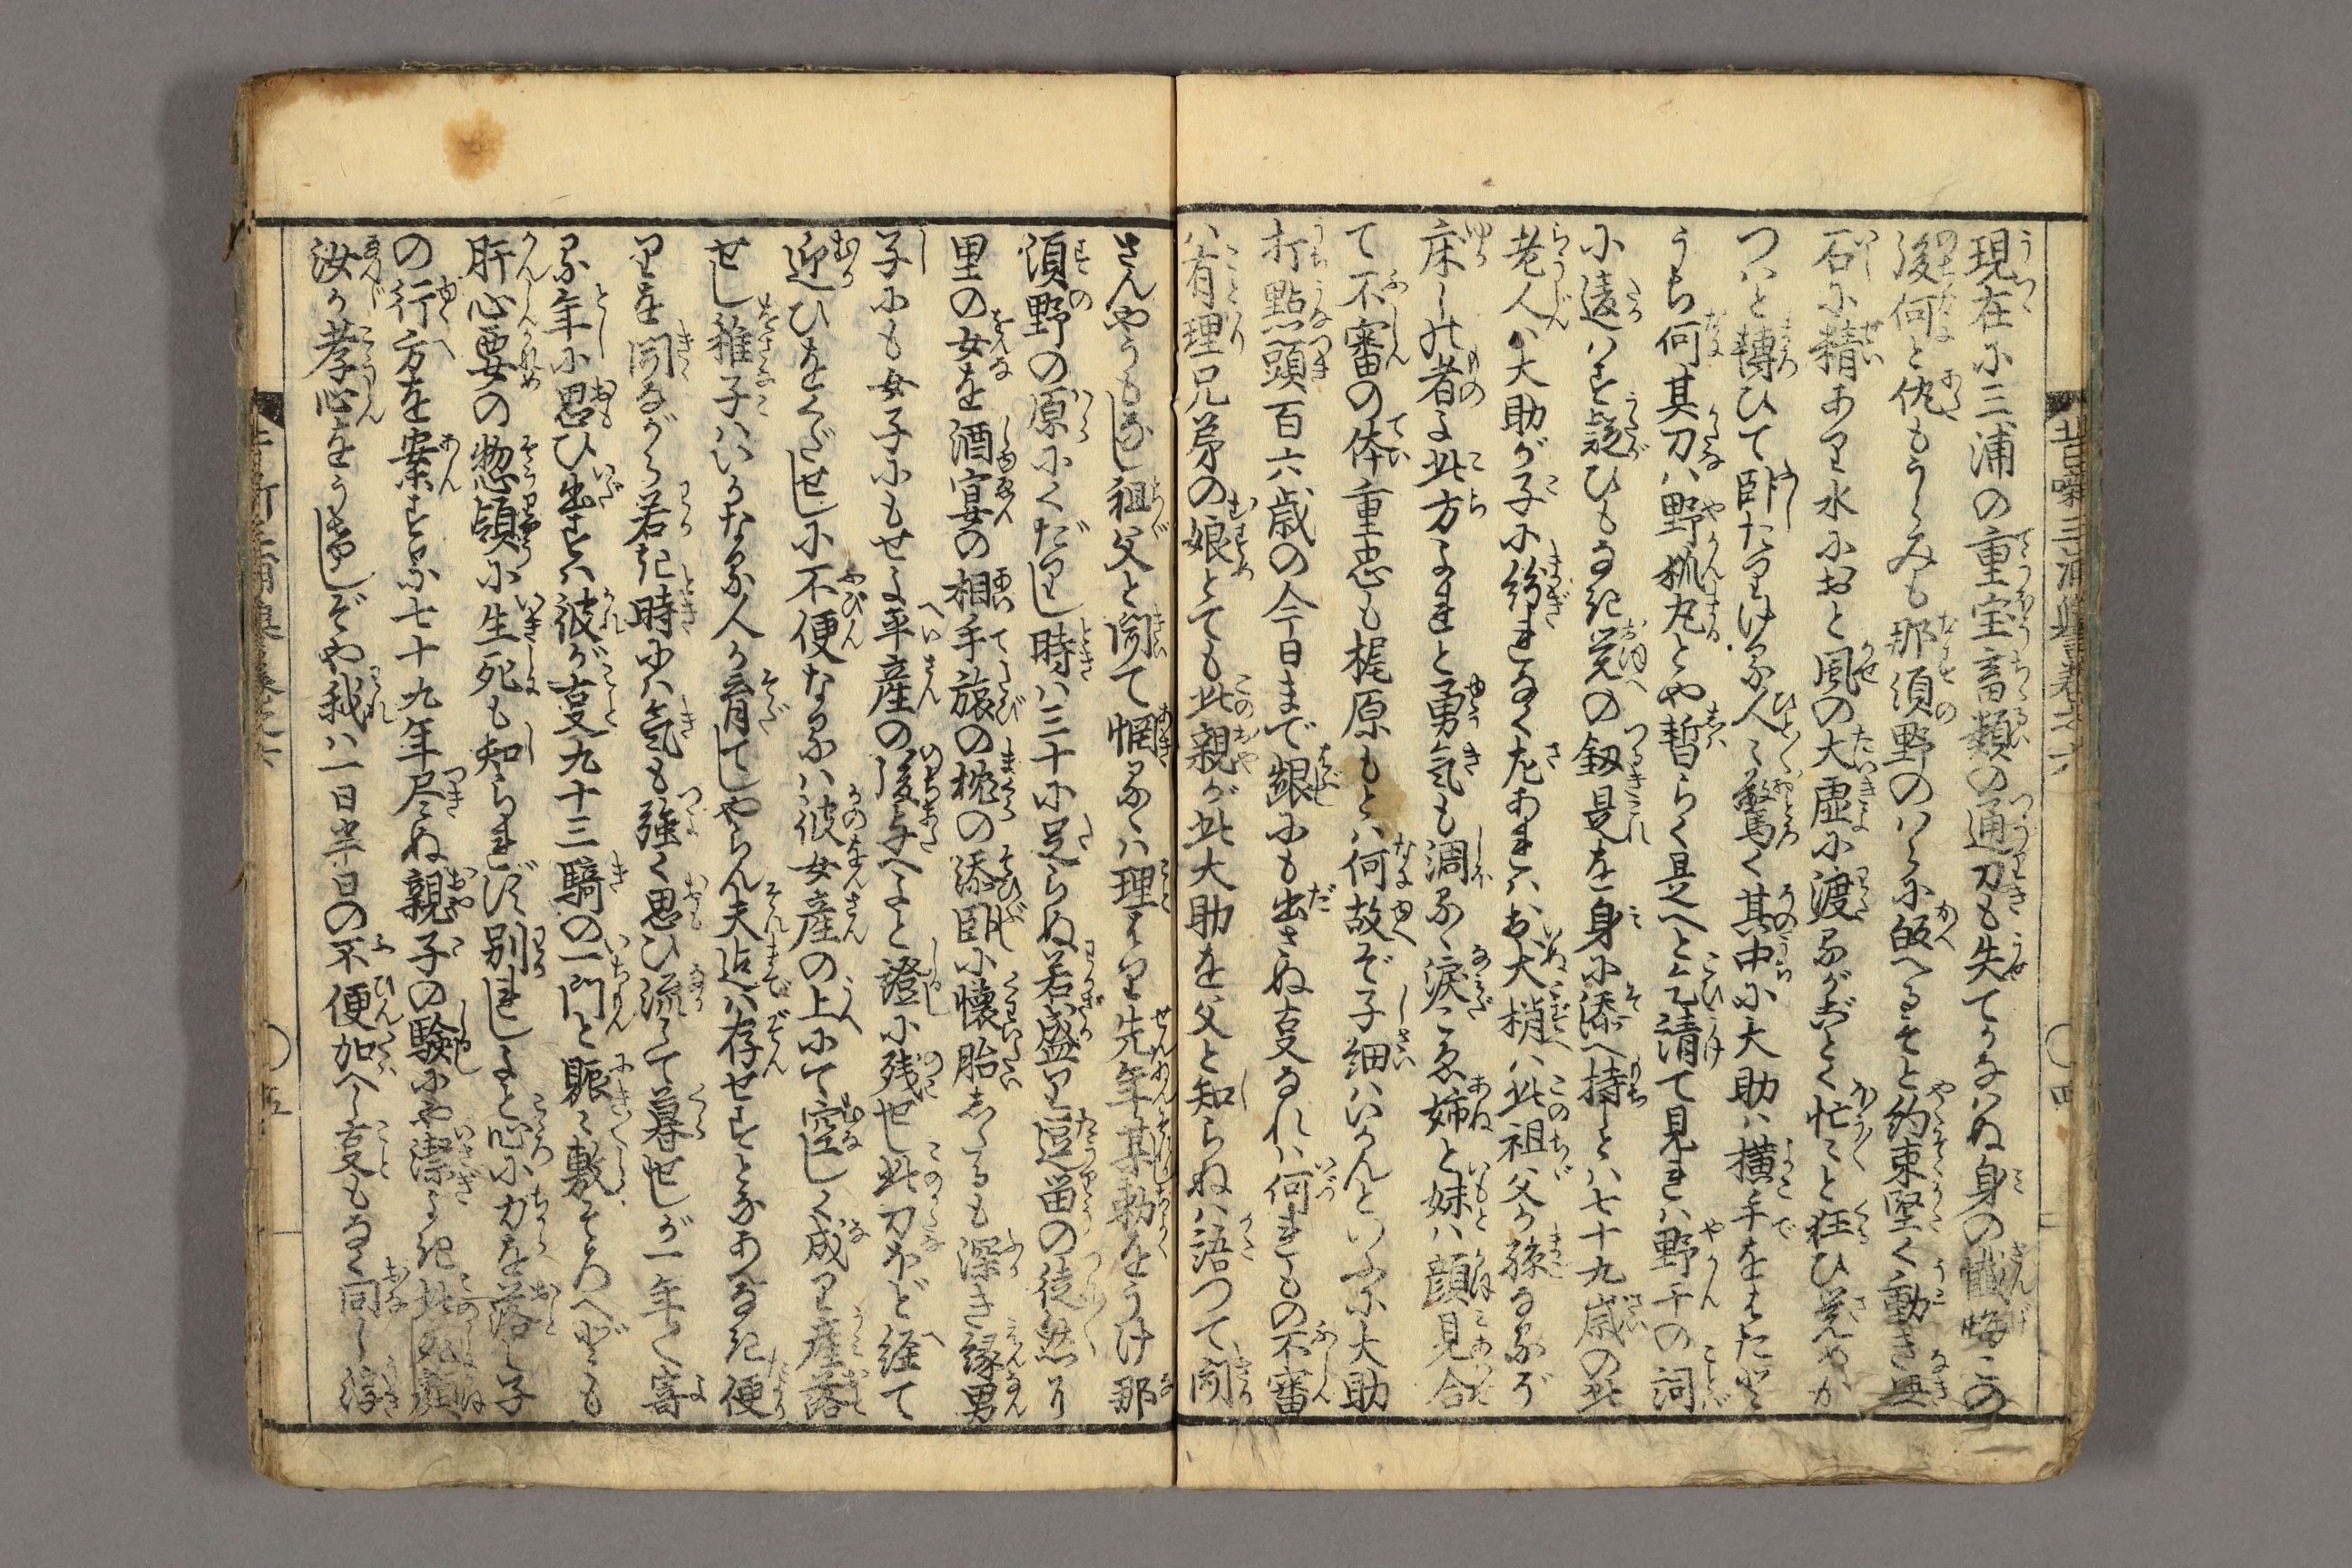 現在に三浦の重宝畜類の通力も失てかなはぬ身の懺悔この
後何と仇もうらみも那須野のはらに皈へるぞと約束堅く動き無
石に精あり水におと風の大虚に渡るがごとく忙〻と狂ひ覚めか
つはと轉ひて臥たりける人〻驚く其中に大助は横手をはたと
うち何其刀は野狐丸とや暫らく是へと乞請て見れは野干の詞
に違はず疑ひもなき覚の釼是を身に添へ持しとは七十九歳の此
老人は大助が子に紛れなく左あれはお犬梢は此祖父か孫なるぞ
床しの者よ此方よれと勇気も凋るゝ涙こゑ姉と妹は顔見合
て不審の体重忠も梶原もとは何故ぞ子細はいかんといふに大助
打點頭百六歳の今日まで齦にも出さぬ叓なれは何れもの不審
は有理兄弟の娘とても此親が此大助を父と知らねは語つて聞
さんやうもなし祖父と聞て惘るゝは理はり先年某勅をうけ那
須野の原にくだりし時は三十に足らぬ若盛り逗畄の徒然り
里の女を酒宴の相手旅の枕の添臥に懐胎しゝるも深き縁男
子にも女子にもせよ平産の後与へよと證に残せし此刀ほど経て
迎ひをくだせしに不便なるは彼女産の上にて空しく成り産落
せし稚子はいかなる人か育てしやらん夫迠は存せずとなあへなき便
りを聞ながら若き時には気も強く思ひ流して暮せしが一年〳〵寄
る年に思ひ出すは彼が叓九十三騎の一門と賑〻敷そろへども
肝心要の惣領に生死も知られず別れしよと心に力を落し子
の行方を案ずるに七十九年尽ぬ親子の驗にや潔よき此死顔
汝か孝心をうけしぞや我は一日半日の不便加へし叓もなく同し浮